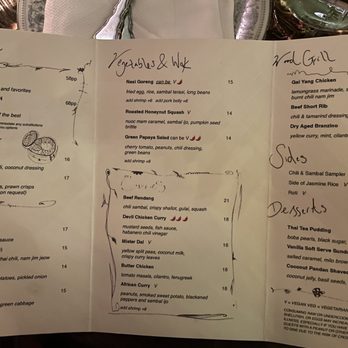 50pp
and favorites
60pp
of the best
16
, coconut dressing
17
, prawn crisps
on request)
15
sauce
15
al chili, nam jim jaew
14
tatoes, pickled onion
green cabbage
Vegetables & Wok
Nasi Goreng can be V 15
fried egg, rice, sambal terasi, long beans
add shrimp +8 add pork belly +6
Roasted Honeynut Squash V 14
nuoc mam caramel, sambal ijo, pumpkin seed
brittle
Green Papaya Salad can be V 15
cherry tomato, peanuts, chili dressing,
green beans
add shrimp +8
Curries
Beef Rendang 21
chili sambal, crispy shallot, gulai, squash
Devil Chicken Curry 18
mustard seeds, fish sauce,
habanero chili vinegar
Mister Dal V 16
yellow split peas, coconut milk,
crispy curry leaves
Butter Chicken 18
tomato masala, cilantro, fenugreek
African Curry V 16
peanuts, smoked sweet potato, blackened
peppers and sambal ijo
add shrimp +8
Wood Grill
Gai Yang Chicken
lemongrass marinade, s
burnt chili nam jim
Beef Short Rib
chili & tamarind dressing
Dry Aged Branzino
yellow curry, mint, cilantr
Sides
Chili & Sambal Sampler
Side of Jasmine Rice V
Roti V
Desserts
Thai Tea Pudding
boba pearls, black sugar,
Vanilla Soft Serve Sunda
salted caramel, milo brown
Coconut Pandan Shaved
coconut jelly, basil seeds,
V = VEGAN VEG = VEGETARIAN
CONSUMING RAW OR UNDERCOOK
SHELLFISH, OR EGGS MAY INCREAS
ILLNESS, ESPECIALLY IF YOU HAVE
GUESTS WITH A PEANUT OR OTHER